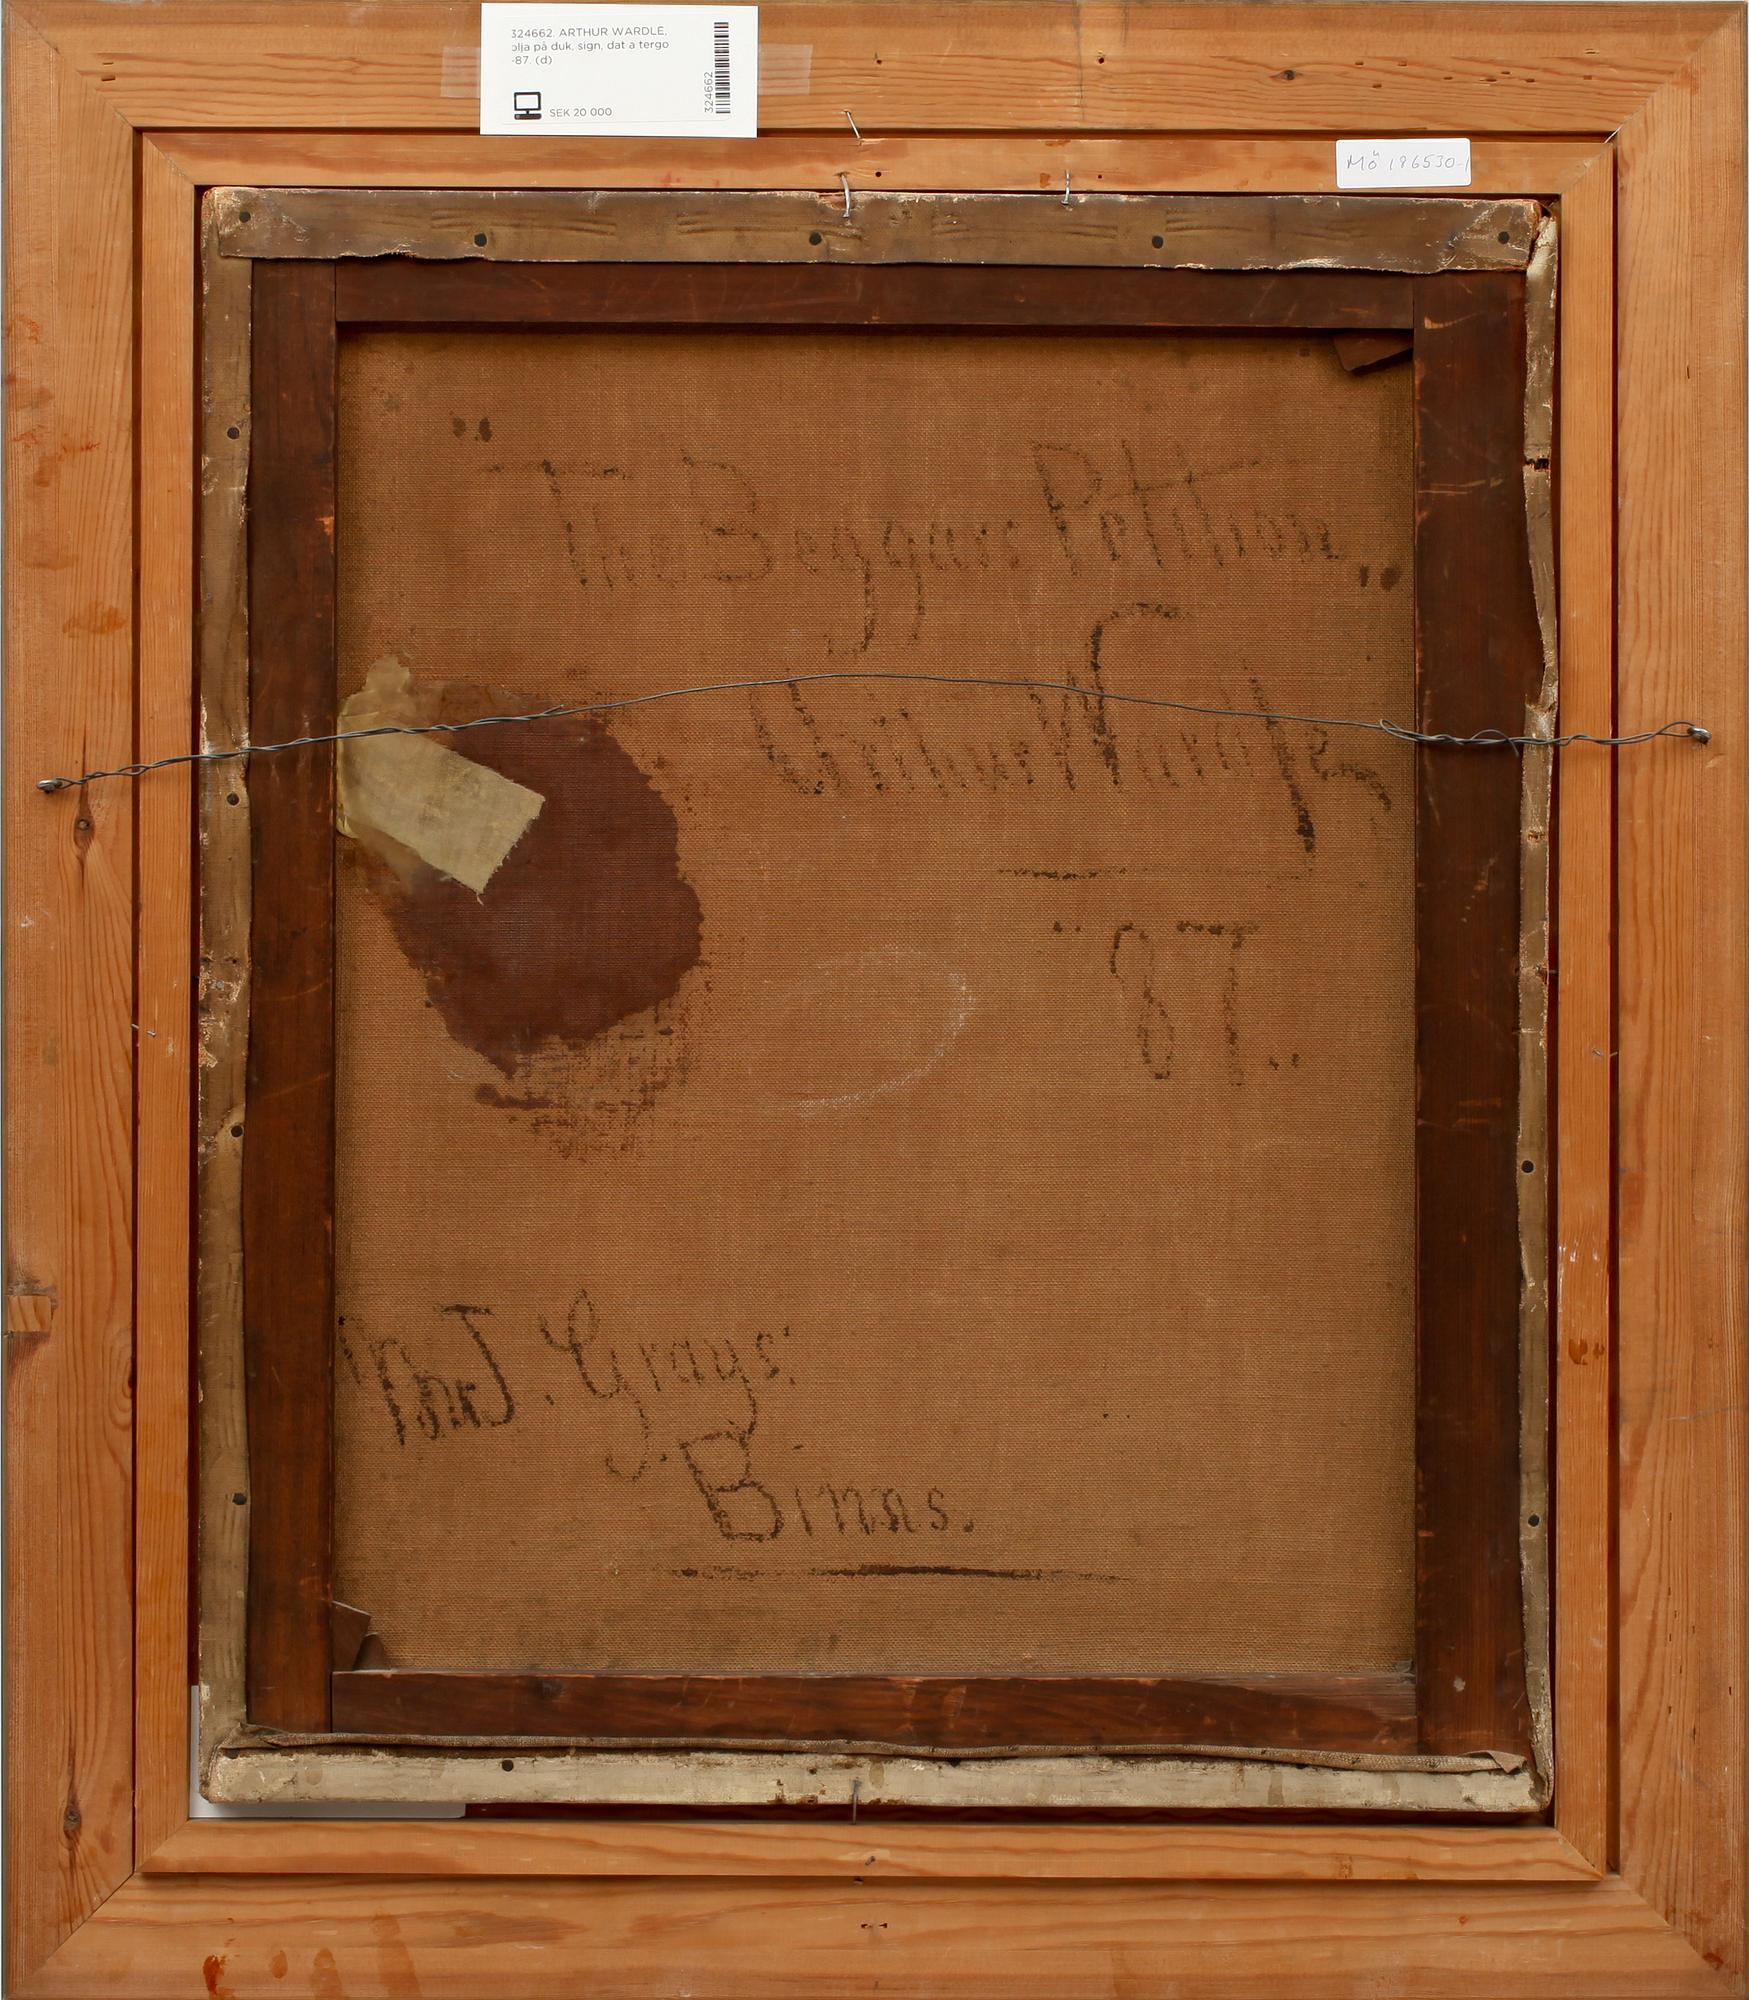 324662. ARTHUR WARDLE,
olja på duk, sign, dat a tergo
-87. (d)
SEK 20 000
324662
Mö 186530-1
"The Beggars Petition"
Arthur Wardle
"87"
J. Grays.
Binns.